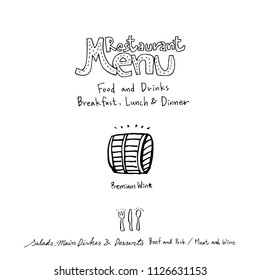 Restaurant
Menu
Food and Drinks
Breakfast, Lunch & Dinner
Premium Wine
Salads, Main Dishes & Desserts Beef and Pork / Meat and Wine
shutterstock.com · 1126631153